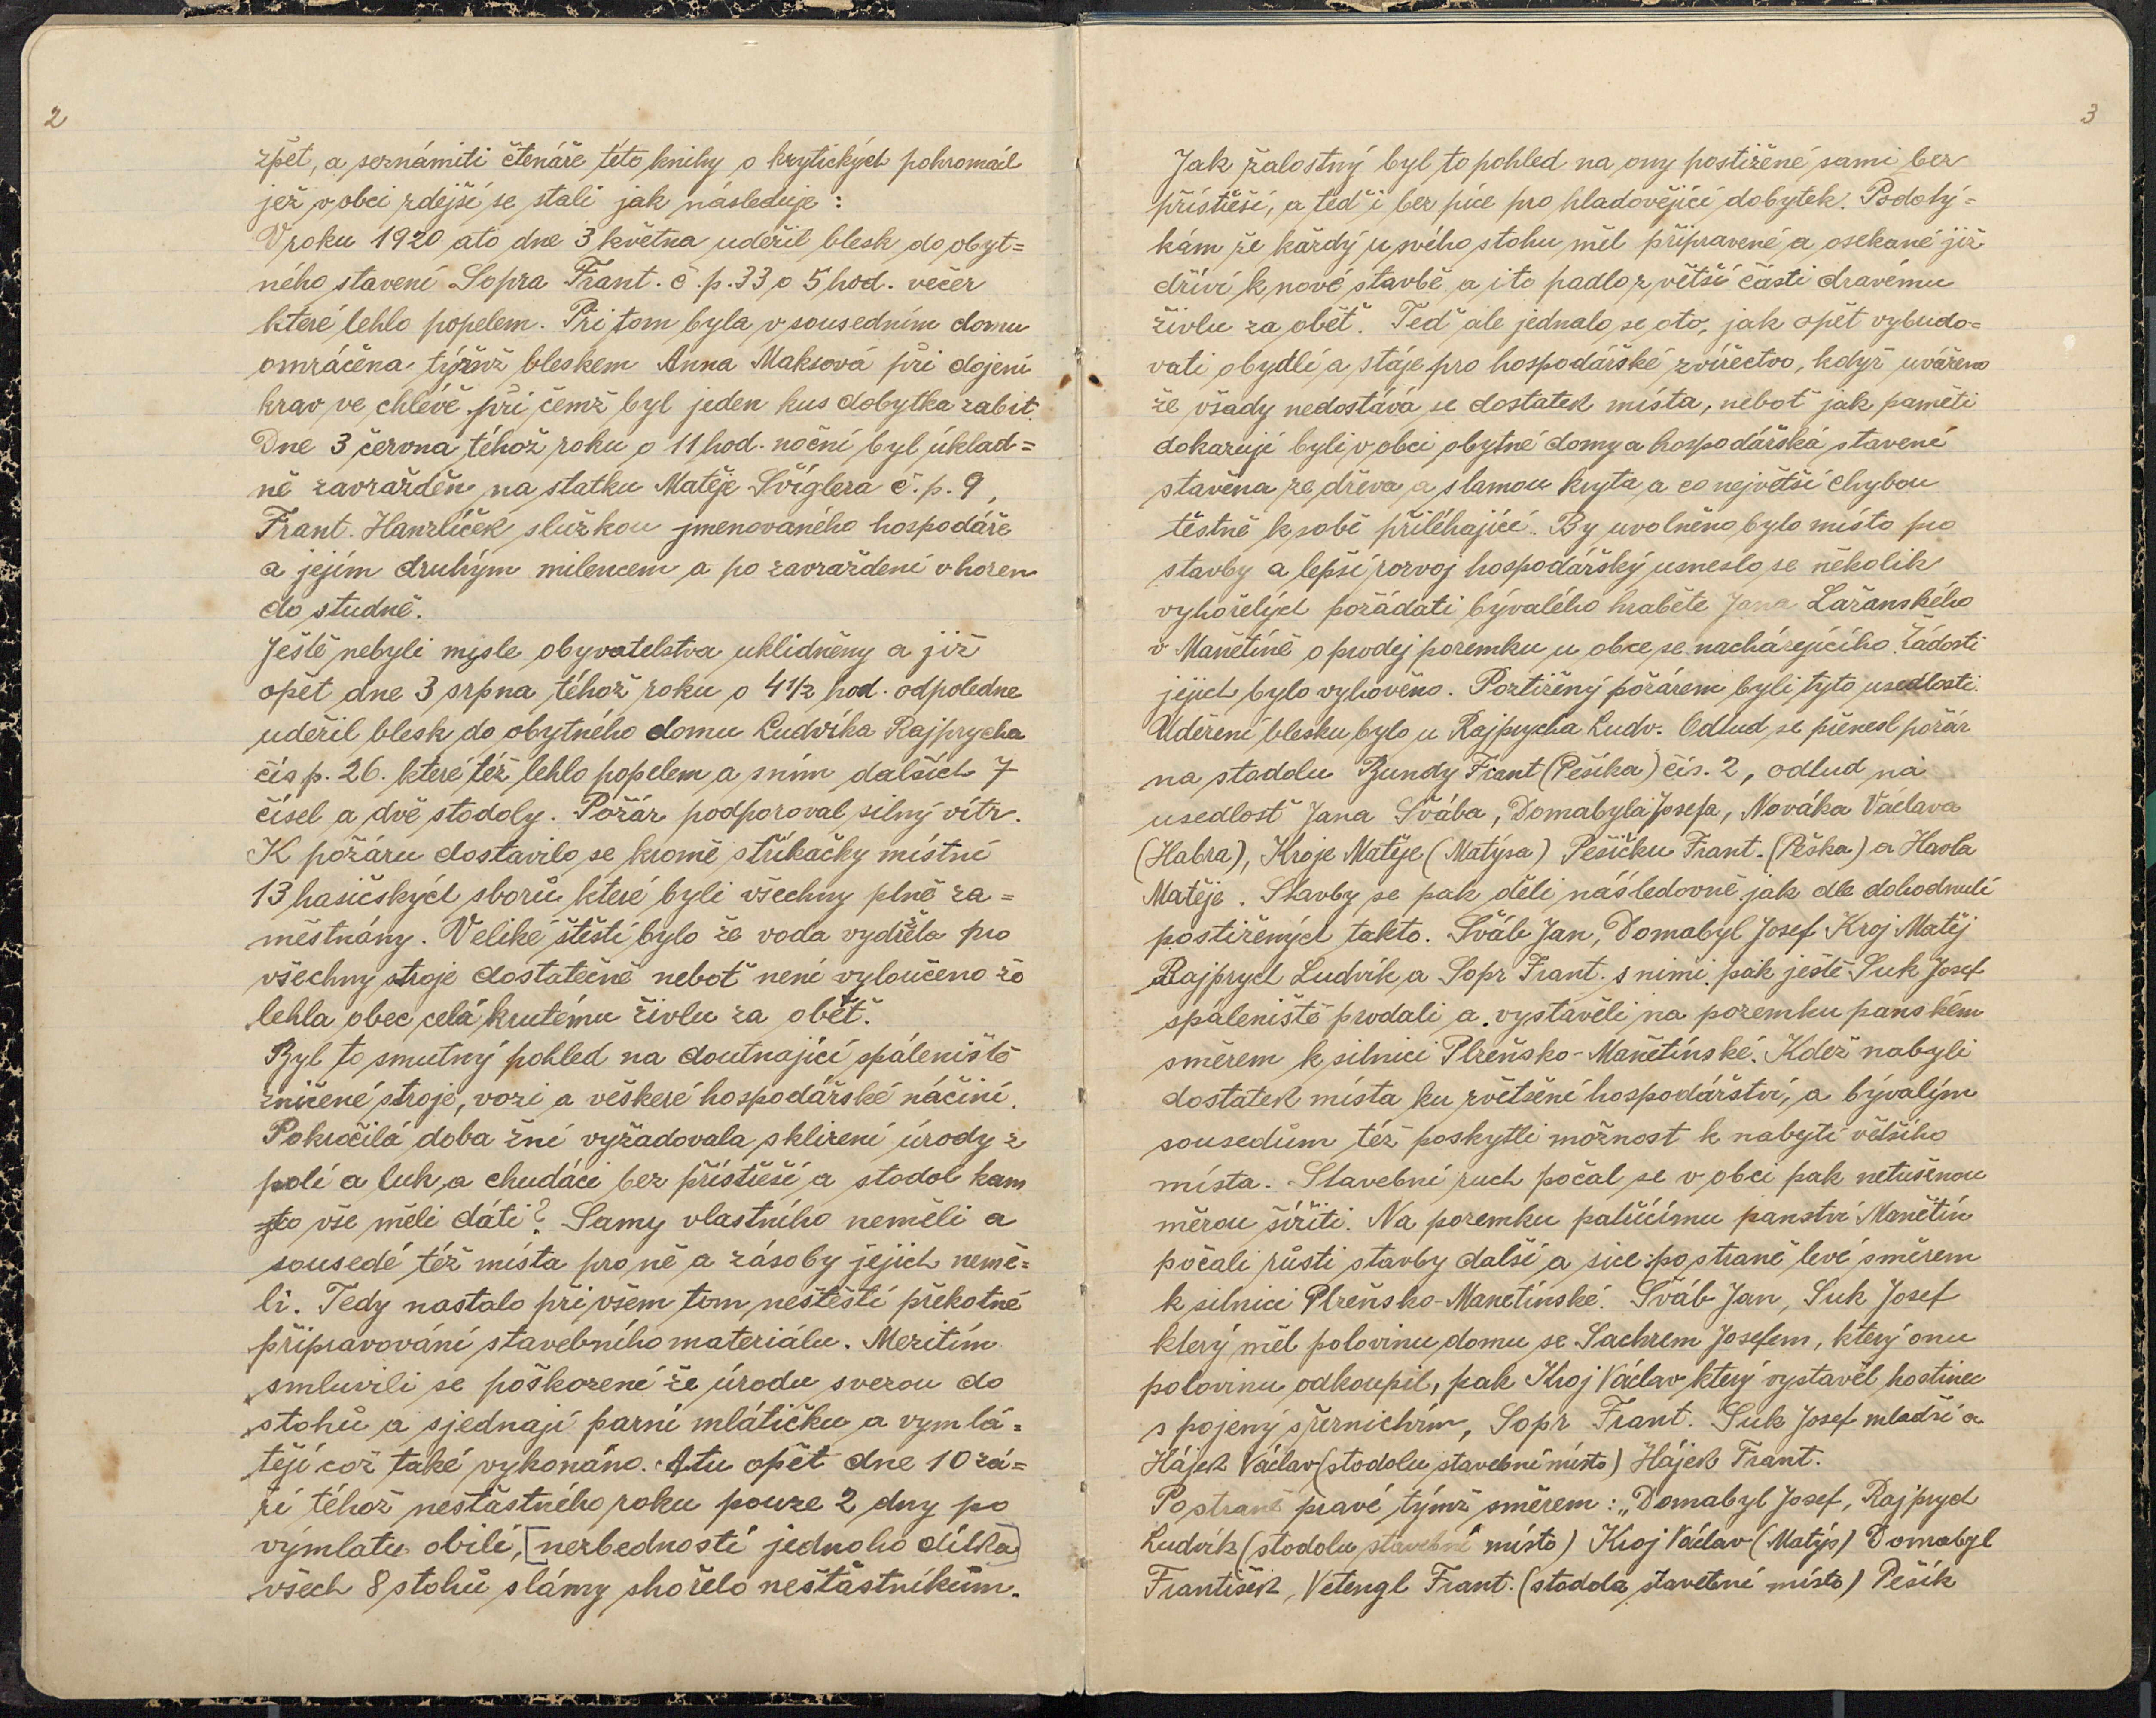 2
zpět, a seznámiti čtenáře této knihy o krytických pohromách
jež v obci zdejší se stali jak následuje:
V roku 1920 a to dne 3 května udeřil blesk do obyt=
ného stavení Sopra Frant. č. p. 33 o 5 hod. večer
které lehlo popelem. Při tom byla v sousedním domu
omráčena týmž bleskem Anna Maksová při dojení
krav ve chlévě při čemž byl jeden kus dobytka zabit.
Dne 3 června téhož roku o 11 hod. noční byl úklad=
ně zavražděn na statku Matěje Švíglera č. p. 9,
Frant. Hanzlíček služkou jmenovaného hospodáře
a jejím druhým milencem a po zavraždení vhozen
do studně.
Ještě nebyli mysle obyvatelstva uklidněny a již
opět dne 3 srpna téhož roku o 4 1/2 hod. odpoledne
udeřil blesk do obytného domu Ludvíka Rajprycha
čís p. 26. které též lehlo popelem a sním dalších 7
čísel a dvě stodoly. Požár podporoval silný vítr.
K požáru dostavilo se kromě stříkačky místní
13 hasičských sborů které byli všechny plně za=
městnány. Veliké štěstí bylo že voda vydržela pro
všechny stroje dostatečně neboť není vyloučeno že
lehla obec celá krutému živlu za oběť.
Byl to smutný pohled na doutnající spáleniště
zničené stroje, vozi a veškeré hospodářské náčiní.
Pokročilá doba žní vyžadovala sklizení úrody z
polí a luk, a chudáci bez přístřeší a stodol kam
to vše měli dáti? Samy vlastního neměli a
sousedé též místa pro ně a zásoby jejich nemě=
li. Tedy nastalo při všem tom neštěstí překotné
připravování stavebního materiálu. Mezitím
smluvili se poškození že úrodu svezou do
stohů a sjednají parní mlátičku a vymlá=
tějí což také vykonáno. A tu opět dne 10 zá=
ří téhož nešťastného roku pouze 2 dny po
výmlatu obilí, [nezbedností jednoho dítka]
všech 8 stohů slámy shořelo nešťastníkům.
3
Jak žalostný byl to pohled na ony postižené sami bez
přístřeší, a teď i bez píce pro hladovějící dobytek. Podotý=
kám že každý u svého stohu měl připravené a osekané již
dříví k nové stavbě a i to padlo z větší části dravému
živlu za oběť. Teď ale jednalo se oto, jak opět vybudo=
vati obydlí a stáje pro hospodářské zvířectvo, když uváženo
že všady nedostává se dostatek místa, neboť jak paměti
dokazují byli v obci obytné domy a hospodářská stavení
stavěna ze dřeva a slamou kryta a co největší chybou
těstně k sobě přiléhající. By uvolněno bylo místo pro
stavby a lepší rozvoj hospodářský usneslo se několik
vyhořelých požádati bývalého hraběte Jana Lažanského
v Manětíně o prodej pozemku u obce se nacházejícího. Žádosti
jejich bylo vyhověno. Postižený požárem byli tyto usedlosti.
Udeření blesku bylo u Rajprycha Ludv. Odtud se přenesl požár
na stodolu Bundy Frant (Pešíka) čís. 2, odtud na
usedlosť Jana Švába, Domabyla Josefa, Nováka Václava
(Habra), Kroje Matěje (Matýsa) Pešičku Frant. (Peška) a Havla
Matěje. Stavby se pak děli následovně jak dle dohodnutí
postižených takto. Šváb Jan, Domabyl Josef Kroj Matěj
Rajprych Ludvík a Sopr Frant. s nimi pak ještě Suk Josef
spáleniště prodali a vystavěli na pozemku panském
směrem k silnici Plzeňsko-Manětínské. Kdež nabyli
dostatek místa ku zvětšení hospodářství, a bývalým
sousedům též poskytli možnost k nabytí většího
místa. Stavební ruch počal se v obci pak netušenou
měrou šířiti. Na pozemku patřícímu panství Manětín
počali růsti stavby další a sice: po straně levé směrem
k silnici Plzeňsko-Manětínské. Šváb Jan, Suk Josef
který měl polovinu domu se Sachrem Josefem, který onu
polovinu odkoupil, pak Kroj Václav který vystavěl hostinec
s pojený s řeznictvím, Sopr Frant. Suk Josef mladší a
Hájek Václav (stodolu stavební místo) Hájek Frant.
Po straně pravé týmž směrem: „Domabyl Josef, Rajprych
Ludvík (stodolu stavební místo) Kroj Václav (Matýs) Domabyl
František, Vetengl Frant. (stodola stavební místo) Pešík